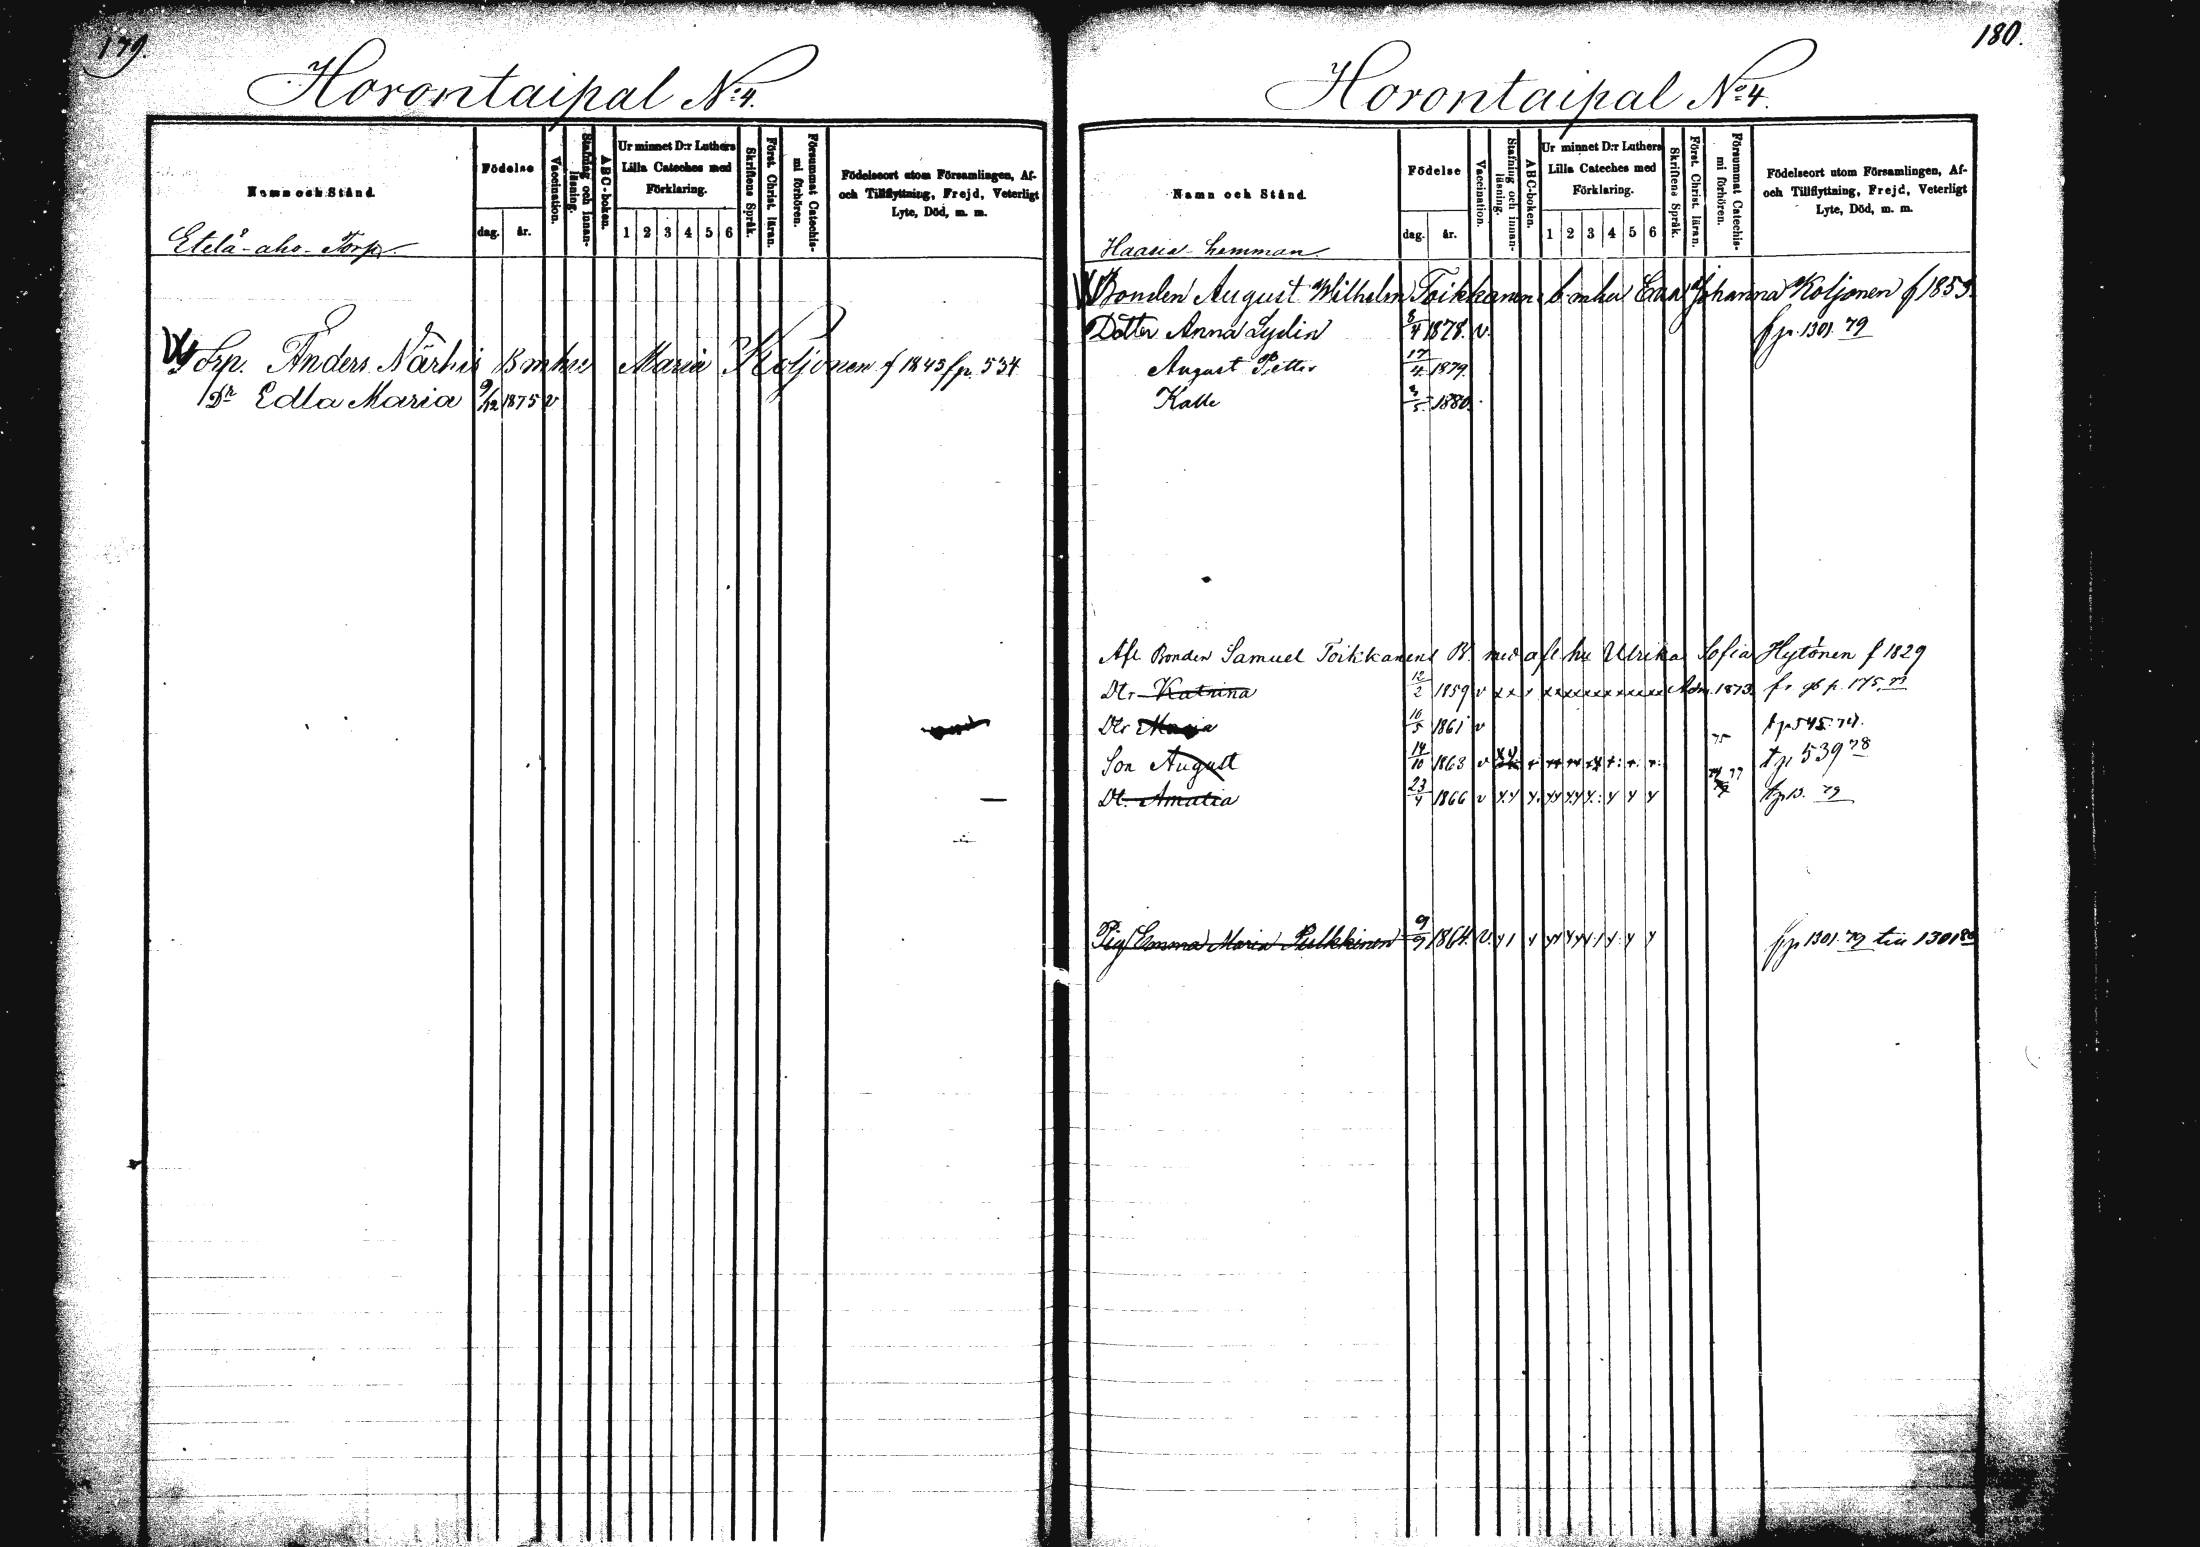 179.
Horontaipal No 4.
Namn och Stånd
Födelse
dag. år.
Vaccination.
Stafning och innanläsning.
ABC-boken.
Ur minnet D:r Luthers Lilla Cateches med Förklaring.
1 2 3 4 5 6
Skriftens Språk.
Först. Christ. läran.
Försummat Catechismi förhören.
Födelseort utom Församlingen, Af- och Tillflyttning, Frejd, Veterligt Lyte, Död, m. m.
Etelä-aho-Torp.
Trp. Anders Närhis B m hu Maria Koljonen f 1843 fr p. 534
Dr Edla Maria 9/12 1875 v
180.
Horontaipal No 4.
Namn och Stånd
Födelse
dag. år.
Vaccination.
Stafning och innanläsning.
ABC-boken.
Ur minnet D:r Luthers Lilla Cateches med Förklaring.
1 2 3 4 5 6
Skriftens Språk.
Först. Christ. läran.
Försummat Catechismi förhören.
Födelseort utom Församlingen, Af- och Tillflyttning, Frejd, Veterligt Lyte, Död, m. m.
Haasia-hemman.
Bonden August Wilhelm Toikkanen b m hu Eva Johanna Koljonen f 1853.
Dotter Anna Lydia 8/4 1878. v. fr p. 1301 79
August Petter 17/4 1879.
Kalle 3/5 1880.
Afl Bonden Samuel Toikkanens B. med afl hu Ulrika Sofia Hytönen f 1829
Dtr Katrina 12/2 1859 v x x x x x x x x x x x x Adm. 1873. p. 175.
Dtr Maria 16/5 1861 v t p 545. 74.
Son August 14/10 1863 v 75 t p 539 78
Dt. Amalia 23/4 1866 v 77 t p 13. 79
Pig Emma Maria Pulkkinen 9/9 1864. v. fr p 1301. 79 till 1301 80